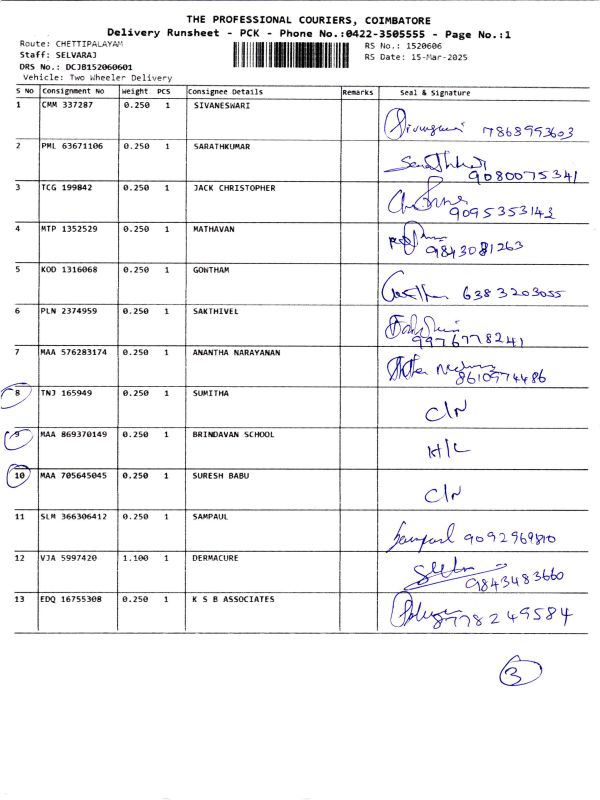 THE PROFESSIONAL COURIERS, COIMBATORE
Delivery Runsheet - PCK - Phone No.:0422-3505555 - Page No.:1
Route: CHETTIPALAYAM RS No.: 1520606
Staff: SELVARAJ RS Date: 15-Mar-2025
DRS No.: DCJB152060601
Vehicle: Two Wheeler Delivery
S No Consignment No Weight PCS Consignee Details Remarks Seal & Signature
1 CMM 337287 0.250 1 SIVANESWARI 7868993603
2 PML 63671106 0.250 1 SARATHKUMAR 9080075341
3 TCG 199842 0.250 1 JACK CHRISTOPHER 9095353143
4 MTP 1352529 0.250 1 MATHAVAN 9843081263
5 KOD 1316068 0.250 1 GONTHAM 6383203055
6 PLN 2374959 0.250 1 SAKTHIVEL 9976778241
7 MAA 576283174 0.250 1 ANANTHA NARAYANAN 8610974486
8 TNJ 165949 0.250 1 SUMITHA C/N
9 MAA 869370149 0.250 1 BRINDAVAN SCHOOL H/L
10 MAA 705645045 0.250 1 SURESH BABU C/N
11 SLM 366306412 0.250 1 SAMPAUL Sampaul 9092969810
12 VJA 5997420 1.100 1 DERMACURE 9843483660
13 EDQ 16755308 0.250 1 K S B ASSOCIATES 9778249584
3